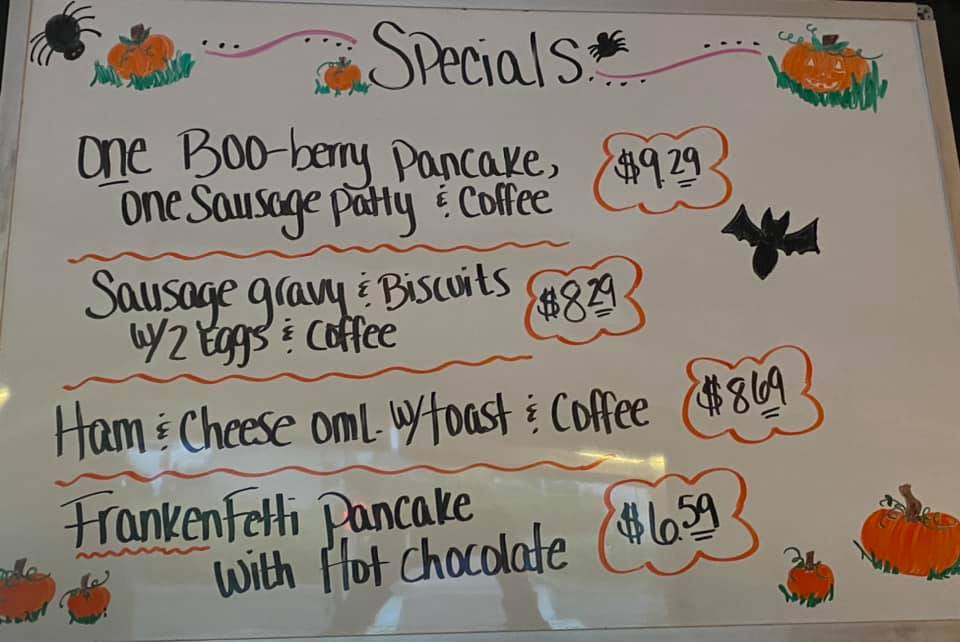 Specials
One Boo-berry Pancake,
one Sausage Patty & Coffee
$9.29
Sausage gravy & Biscuits
w/2 Eggs & Coffee
$8.29
Ham & Cheese oml. w/toast & Coffee
$8.69
Frankenfetti Pancake
with Hot Chocolate
$6.59